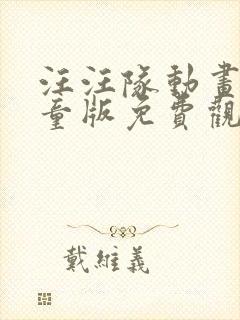 汪汪隊動畫
童版免費觀
戴維義